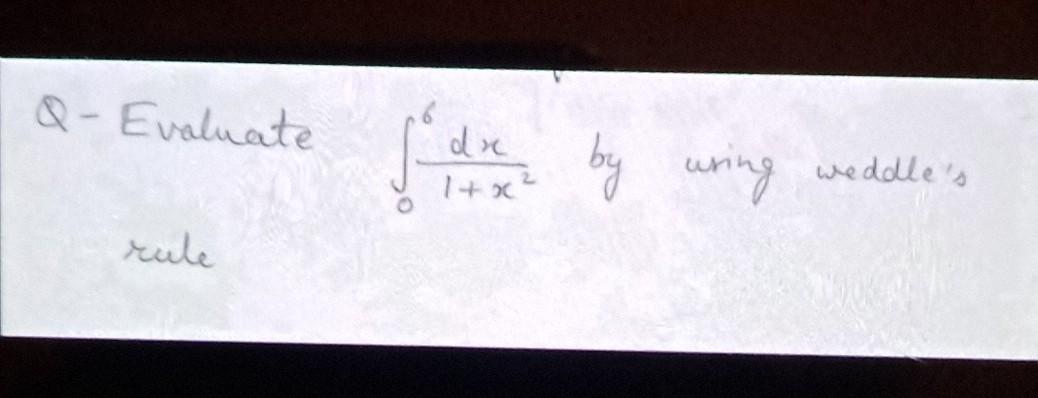 Q- Evaluate ∫₀⁶ dx/(1+x²) by using weddle's
rule